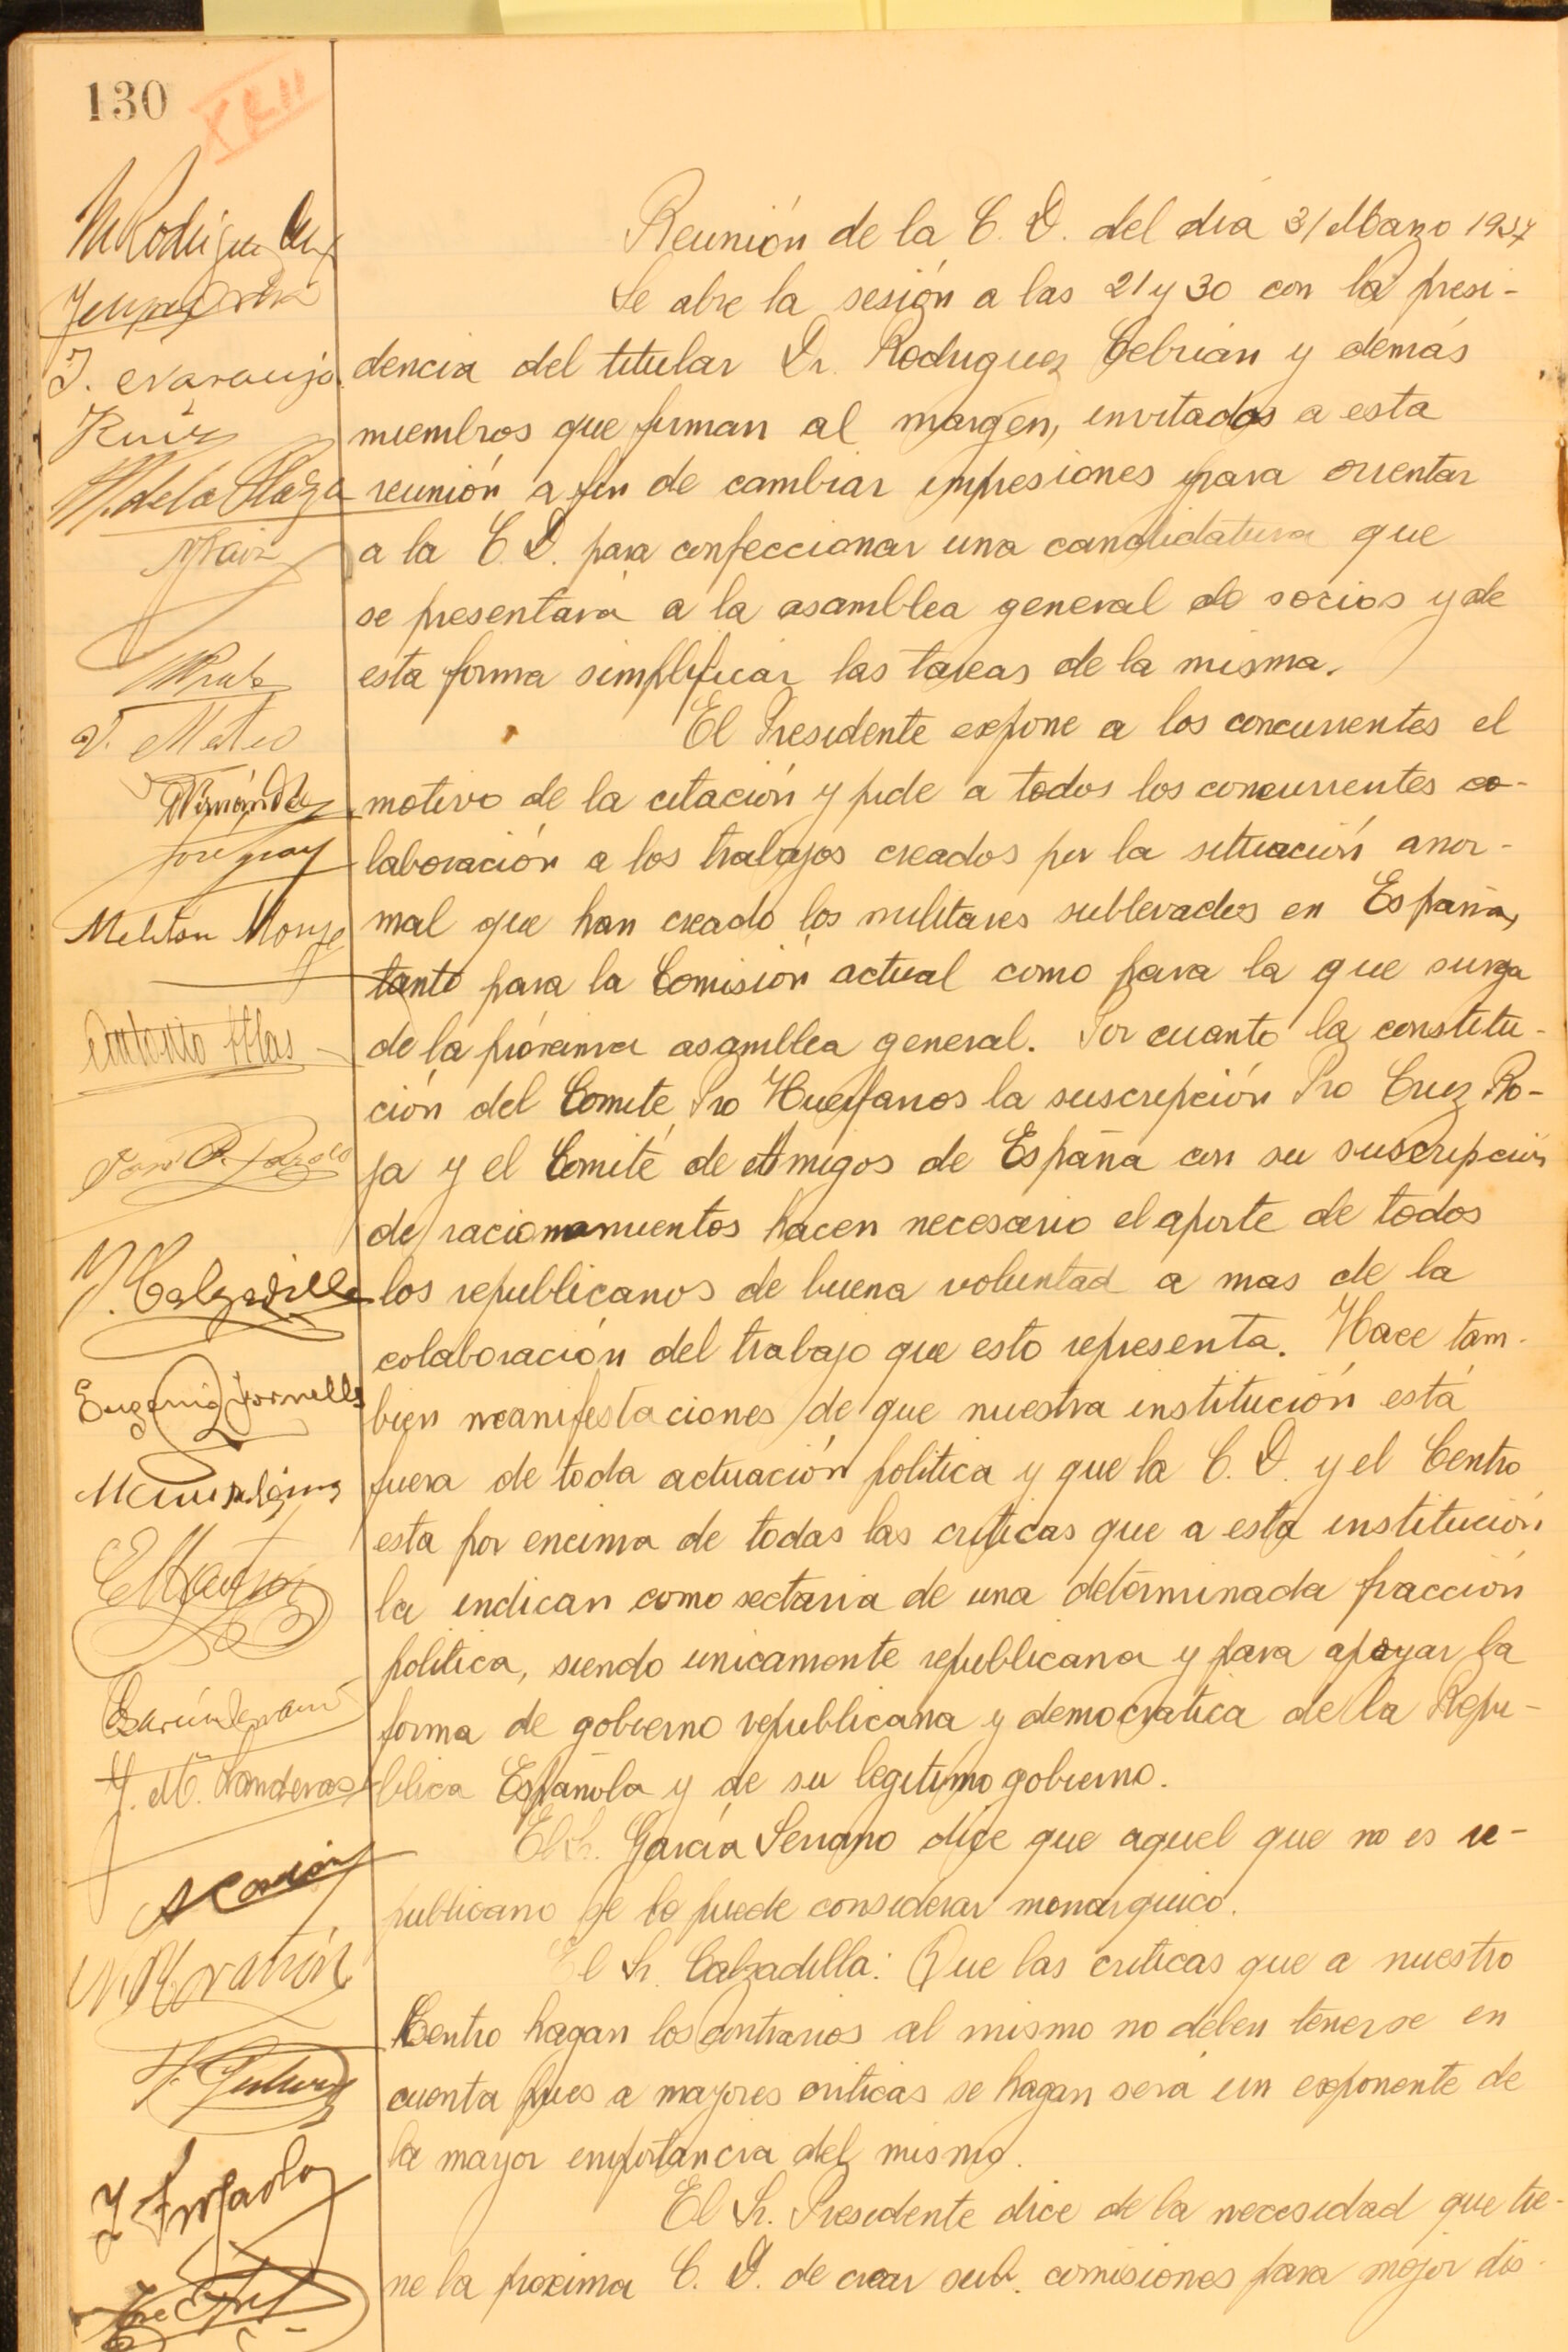 130
XLII
Reunión de la C. D. del dia 31 Marzo 1937
Se abre la sesión a las 21 y 30 con la presi-
dencia del titular Dr. Rodriguez Cebrián y demás
miembros que firman al margen, invitados a esta
reunión a fin de cambiar impresiones para orientar
a la C. D. para confeccionar una candidatura que
se presentará a la asamblea general de socios y de
esta forma simplificar las tareas de la misma.
El Presidente expone a los concurrentes el
motivo de la citación y pide a todos los concurrentes co-
laboración a los trabajos creados por la situación anor-
mal que han creado los militares sublevados en España,
tanto para la Comisión actual como para la que surga
de la próxima asamblea general. Por cuanto la constitu-
ción del Comite Pro Huerfanos la suscripción Pro Cruz Ro-
ja y el Comité de Amigos de España con su suscripción
de racionamientos hacen necesario el aporte de todos
los republicanos de buena voluntad a mas de la
colaboración del trabajo que esto representa. Hace tam-
bien manifestaciones de que nuestra institución está
fuera de toda actuación politica y que la C. D. y el Centro
esta por encima de todas las criticas que a esta institución
la indican como sectaria de una determinada fracción
politica, siendo unicamente republicana y para apoyar la
forma de gobierno republicana y democratica de la Repu-
blica Española y de su legitimo gobierno.
El Sr. García Serrano dice que aquel que no es re-
publicano se lo puede considerar monarquico.
El Sr. Calzadilla: Que las criticas que a nuestro
Centro hagan los contrarios al mismo no deben tenerse en
cuenta pues a mayores criticas se hagan sera un exponente de
la mayor importancia del mismo.
El Sr. Presidente dice de la necesidad que tie-
ne la proxima C. D. de crear sub. comisiones para mejor dis-
J. Naraujo
Ruiz
M. de la Plaza
V. Mateo
Meliton Monge
Antonio Allas
J. Calzadilla
J. M. Landeras